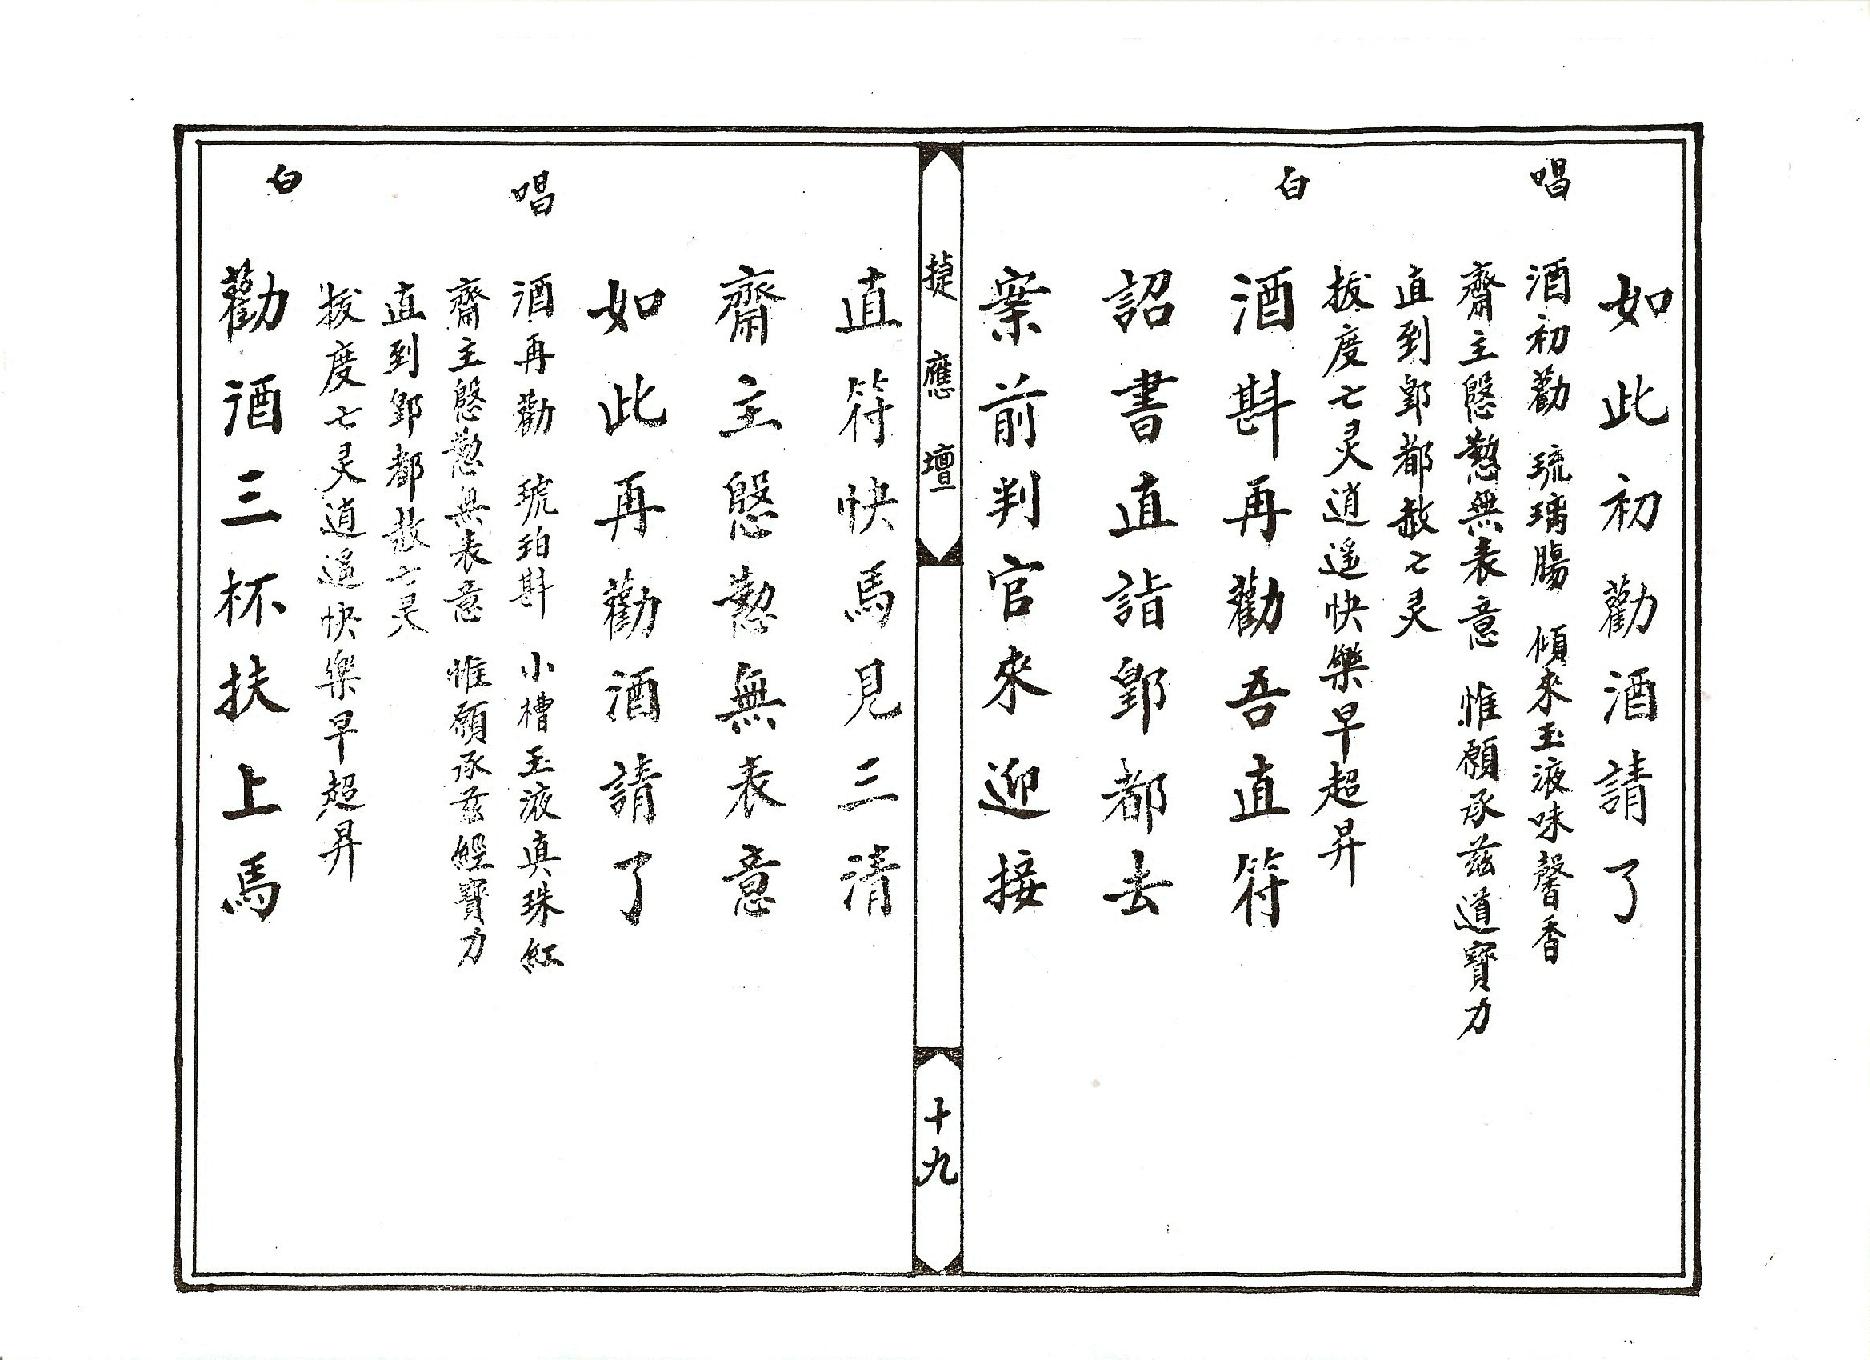 如此初勸酒請了
唱
酒初勸 琉璃腸 傾來玉液味馨香
齋主慇懃無表意 惟願承茲道寶力
直到酆都赦七灵
拔度七灵逍遥快樂早超昇
白
酒斟再勸吾直符
詔書直詣酆都去
案前判官來迎接
捷應壇
十九
直符快馬見三清
齋主慇懃無表意
如此再勸酒請了
唱
酒再勸 琥珀斟 小槽玉液真珠紅
齋主慇懃無表意 惟願承茲經寶力
直到酆都赦七灵
拔度七灵逍遥快樂早超昇
白
勸酒三杯扶上馬